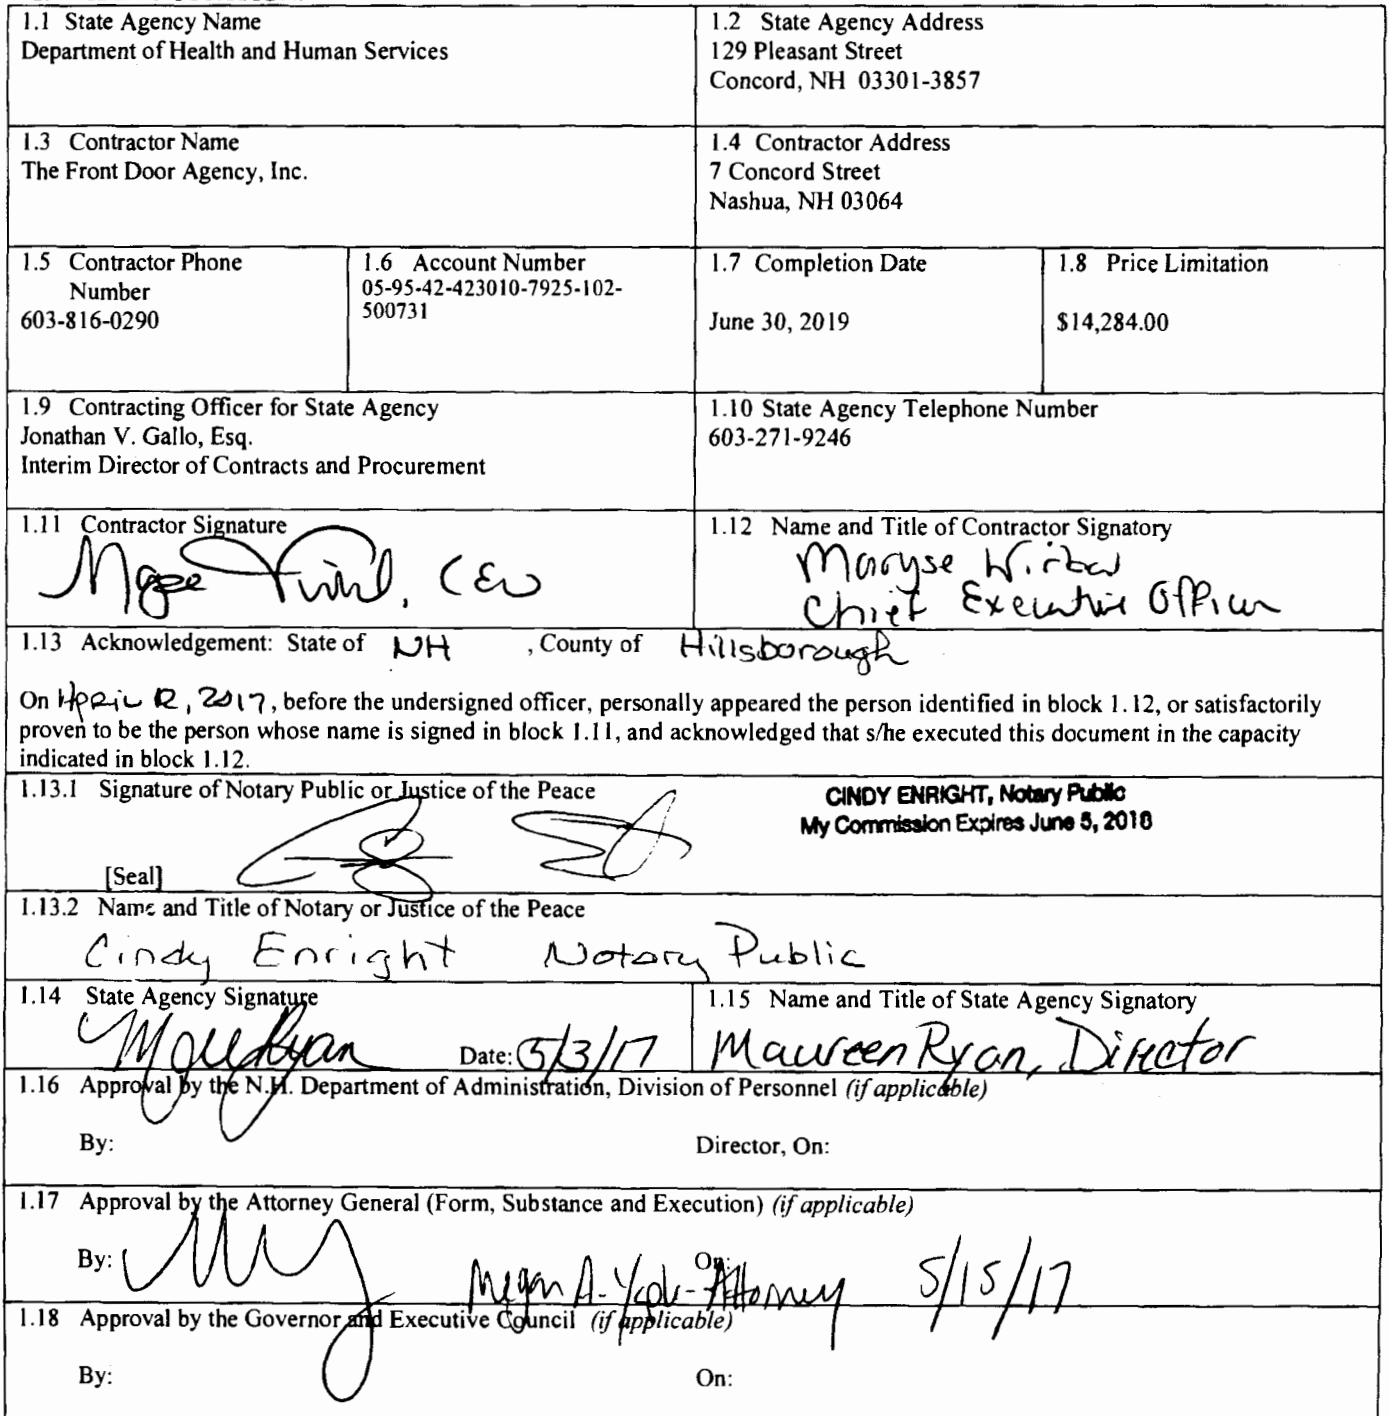 1.1 State Agency Name
Department of Health and Human Services
1.2 State Agency Address
129 Pleasant Street
Concord, NH 03301-3857
1.3 Contractor Name
The Front Door Agency, Inc.
1.4 Contractor Address
7 Concord Street
Nashua, NH 03064
1.5 Contractor Phone
Number
603-816-0290
1.6 Account Number
05-95-42-423010-7925-102-
500731
1.7 Completion Date
June 30, 2019
1.8 Price Limitation
$14,284.00
1.9 Contracting Officer for State Agency
Jonathan V. Gallo, Esq.
Interim Director of Contracts and Procurement
1.10 State Agency Telephone Number
603-271-9246
1.11 Contractor Signature
, CEO
1.12 Name and Title of Contractor Signatory
Maryse
Chief Executive Officer
1.13 Acknowledgement: State of NH , County of Hillsborough
On April 12, 2017, before the undersigned officer, personally appeared the person identified in block 1.12, or satisfactorily
proven to be the person whose name is signed in block 1.11, and acknowledged that s/he executed this document in the capacity
indicated in block 1.12.
1.13.1 Signature of Notary Public or Justice of the Peace
CINDY ENRIGHT, Notary Public
My Commission Expires June 5, 2018
[Seal]
1.13.2 Name and Title of Notary or Justice of the Peace
Cindy Enright Notary Public
1.14 State Agency Signature
Date: 5/3/17
1.15 Name and Title of State Agency Signatory
Maureen Ryan, Director
1.16 Approval by the N.H. Department of Administration, Division of Personnel (if applicable)
By:
Director, On:
1.17 Approval by the Attorney General (Form, Substance and Execution) (if applicable)
By:
On:
Megan A. - Attorney 5/15/17
1.18 Approval by the Governor and Executive Council (if applicable)
By:
On: